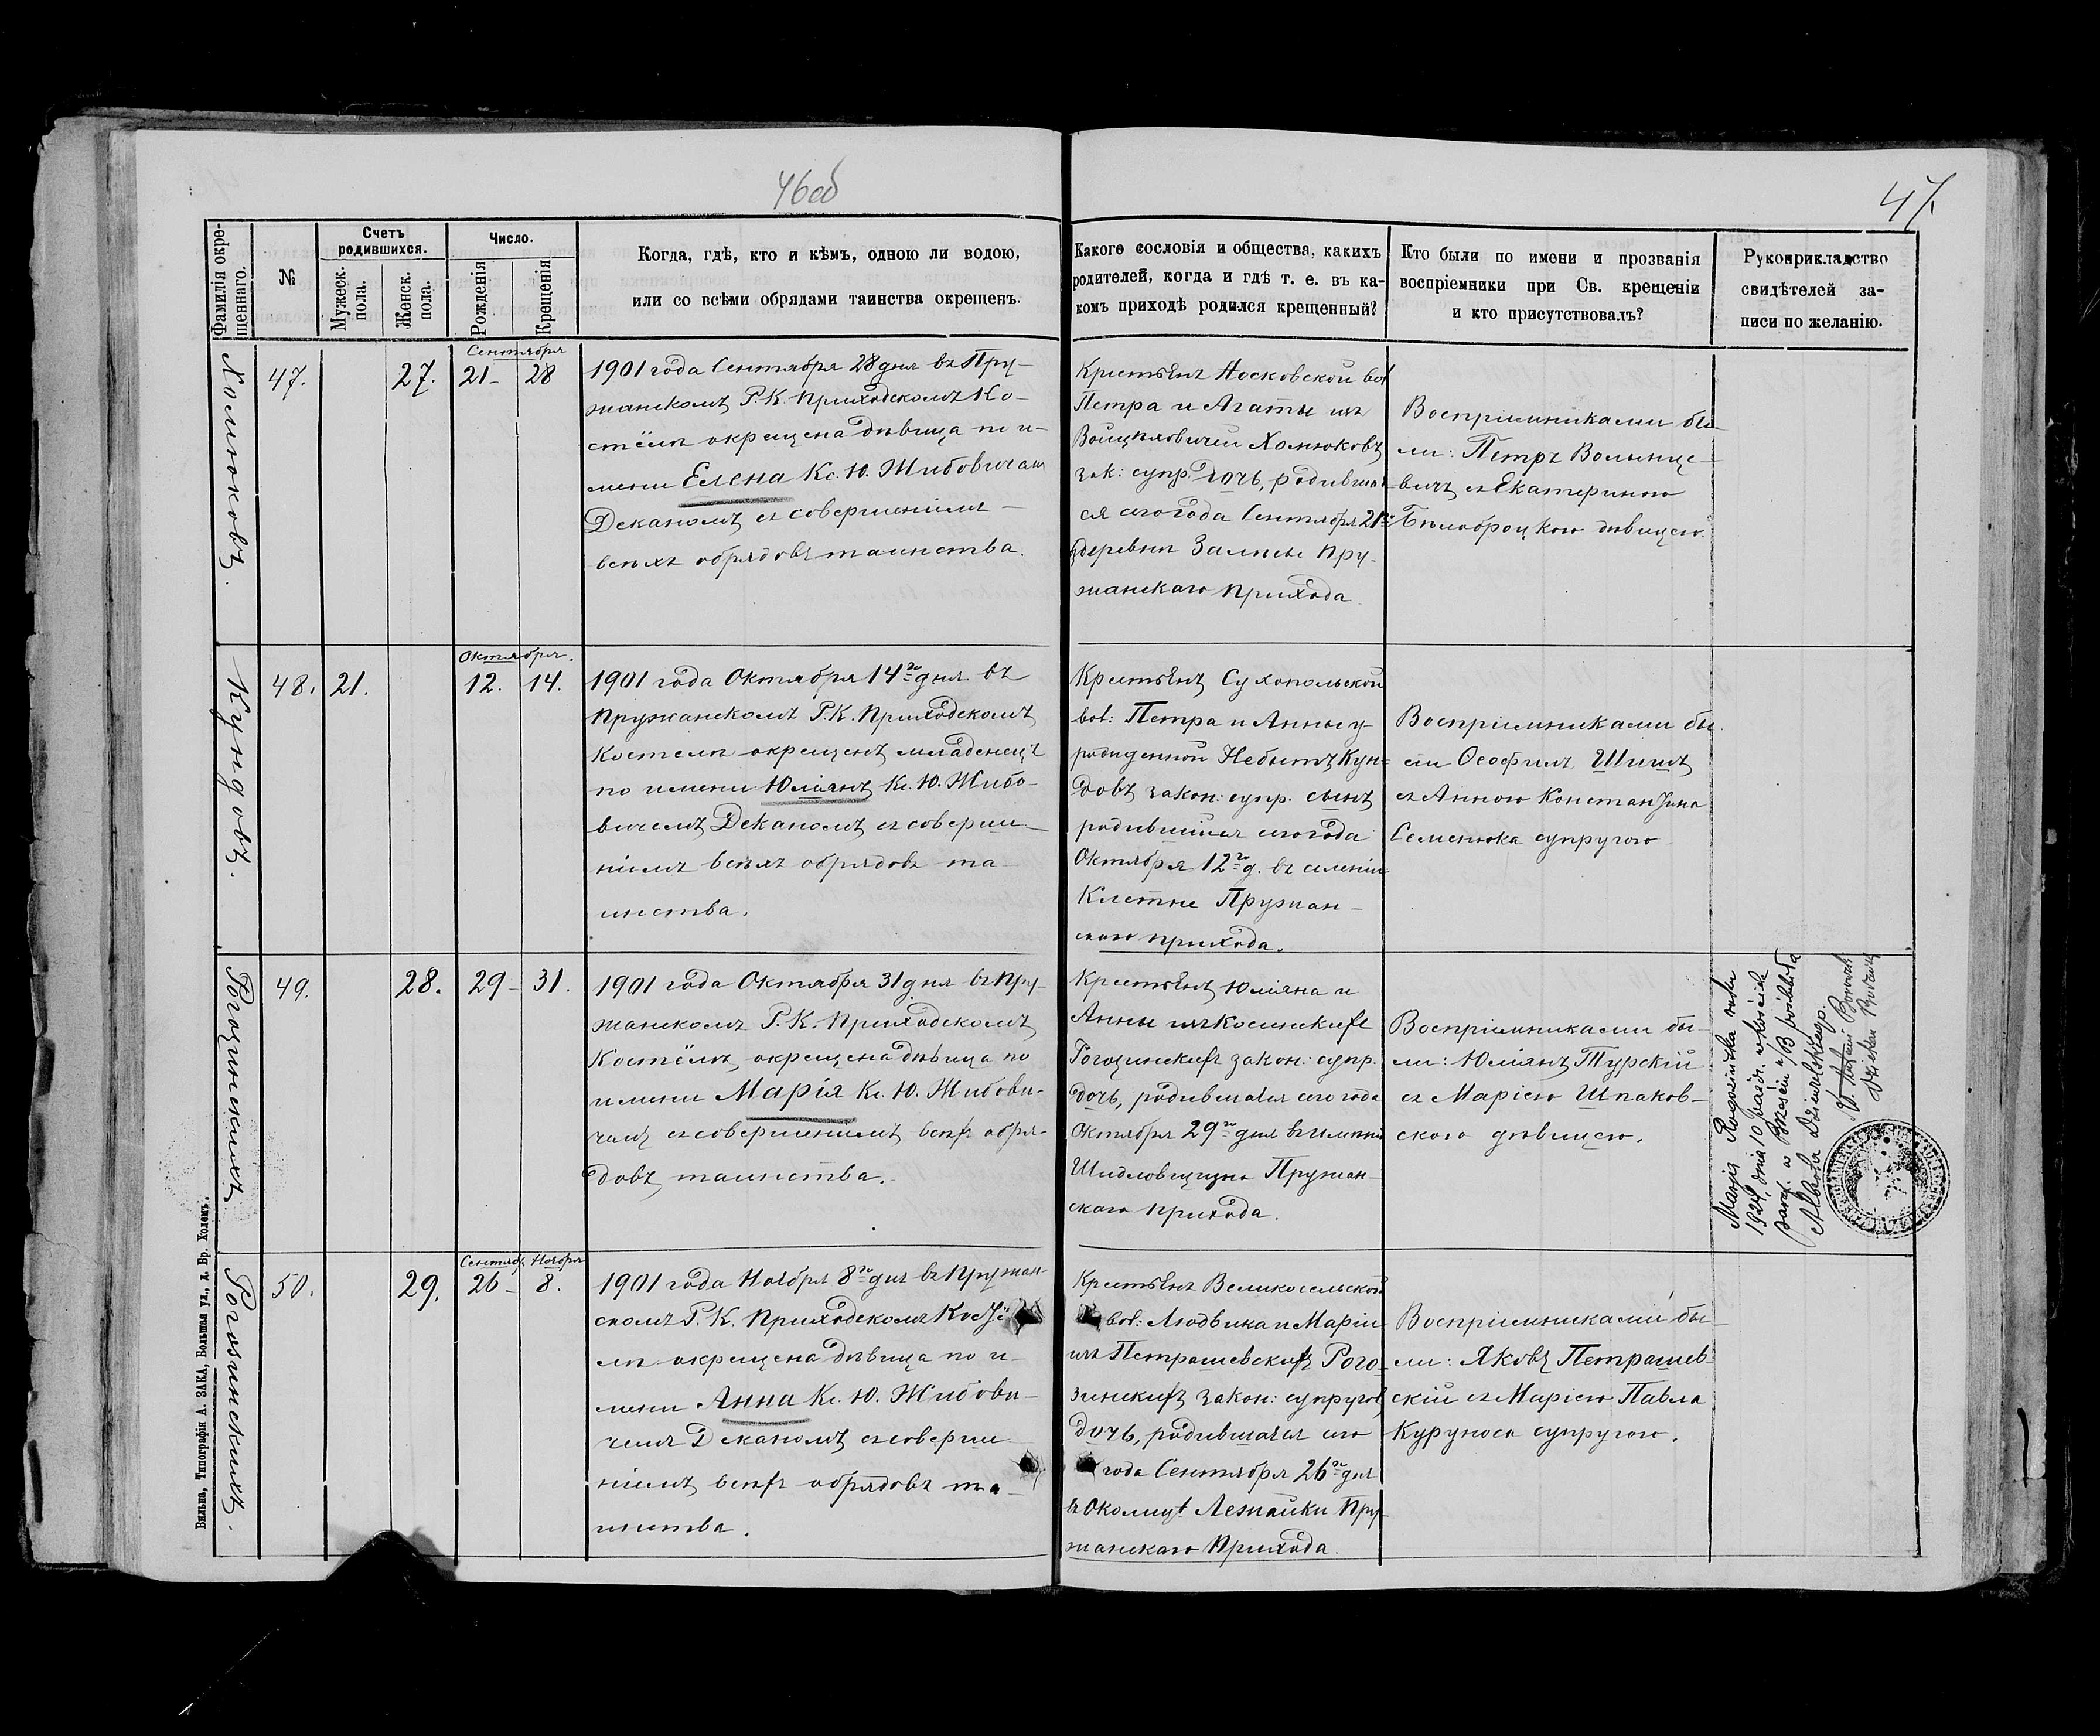 46об
47.
Фамилія окре-
щеннаго.
№
Счетъ
родившихся.
Мужеск.
пола.
Женск.
пола.
Число.
Рожденія
Крещенія
Когда, гдѣ, кто и кѣмъ, одною ли водою,
или со всѣми обрядами таинства окрещенъ.
Какого сословія и общества, какихъ
родителей, когда и гдѣ т. е. въ ка-
комъ приходѣ родился крещенный?
Кто были по имени и прозванія
воспріемники при Св. крещеніи
и кто присутствовалъ?
Рукоприкладство
свидѣтелей за-
писи по желанію.
Хомюковъ.
47.
27.
Сентября
21- 28
1901 года Сентября 28 дня въ Пру-
жанскомъ Р. К. Приходскомъ Ко-
стёлѣ окрещена дѣвица по и-
мени Елена Кс. Ю. Жибовичемъ
Деканомъ съ совершеніемъ
всѣхъ обрядовъ таинства.
Крестьянъ Носковской вол
Петра и Агаты изъ
Войцѣховичей Хомюковъ
зак: супр. дочь, родивша-
ся сего года Сентября 21
деревни Залѣсье Пру-
жанскаго прихода
Воспріемниками бы-
ли: Петръ Волынце-
вичъ съ Екатериною
Бѣлоброцкою дѣвицею.
Кундовъ.
48.
21.
Октября.
12. 14.
1901 года Октября 14го дня въ
Пружанскомъ Р. К. Приходскомъ
Костелѣ окрещенъ младенецъ
по имени Юліянъ Кс. Ю. Жибо-
вичемъ Деканомъ съ соверше-
ніемъ всѣхъ обрядовъ та-
инства.
Крестьянъ Сухопольской
вол: Петра и Анны у-
рожденной Небытъ Кун-
довъ закон: супр. сынъ
родившійся сего года
Октября 12го д. въ селеніи
Клетне Пружан-
скаго прихода.
Воспріемниками бы-
ли Ѳеофилъ Шишъ
съ Анною Константина
Семенюка супругою
Рогозинскихъ
49.
28.
29- 31.
1901 года Октября 31 дня въ Пру-
жанскомъ Р. К. Приходскомъ
Костёлѣ окрещена дѣвица по
имени Марія Кс. Ю. Жибови-
чемъ съ совершеніемъ всѣхъ обря-
довъ таинства.
Крестьянъ Юліяна и
Анны изъ Косинскихъ
Рогозинскихъ закон: супр.
дочь, родившаяся сего года
Октября 29го дня въ имѣніи
Шидловщизна Пружан-
скаго прихода.
Воспріемниками бы-
ли: Юліянъ Турскій
съ Маріею Шпаков-
скою дѣвицею.
Marja Rogozińska roku
1924, dnia 10 paźdz. w kościele
paraf. w Brześciu n/B poślubiła
Рогозинскихъ.
50.
29.
Сентябр. Ноября
26- 8.
1901 года Ноября 8го дня въ Пружан-
скомъ Р. К. Приходскомъ Костё-
лѣ окрещена дѣвица по и-
мени Анна Кс. Ю. Жибови-
чемъ Деканомъ съ соверше-
ніемъ всѣхъ обрядовъ та-
инства.
Крестьянъ Великосельской
вол: Людвика и Маріи
изъ Петрашевскихъ Рого-
зинскихъ закон: супруговъ
дочь, родившаяся сего
года Сентября 26го дня
въ Околицѣ Лежайки Пру-
жанскаго Прихода.
Воспріемниками бы-
ли: Яковъ Петрашев-
скій съ Маріею Павла
Куруноса супругою.
Вильна, Типографія А. ЗАКА, Большая ул., д. Бр. Холемъ.